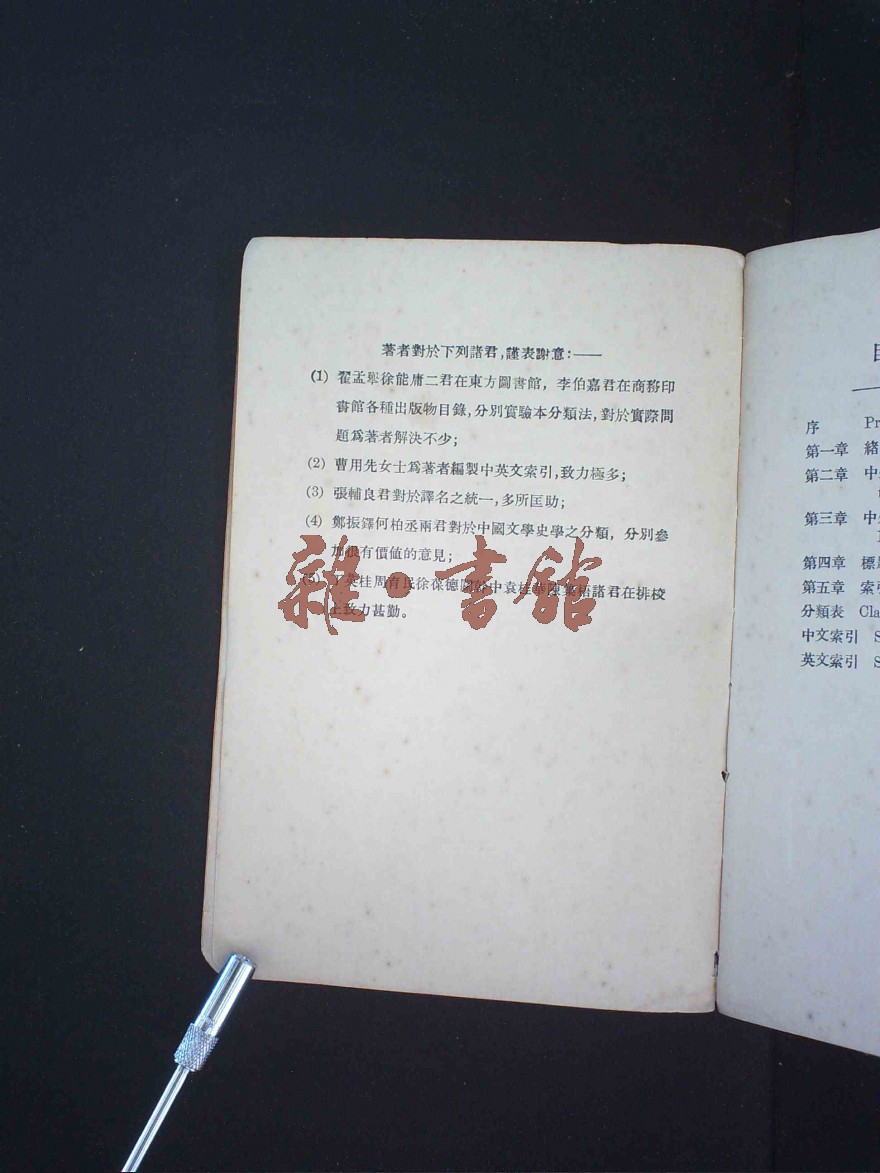 著者對於下列諸君,謹表謝意:——
(1) 翟孟舉徐能庸二君在東方圖書館,李伯嘉君在商務印
書館各種出版物目錄,分別實驗本分類法,對於實際問
題爲著者解決不少;
(2) 曹用先女士爲著者編製中英文索引,致力極多;
(3) 張輔良君對於譯名之統一,多所匡助;
(4) 鄭振鐸何柏丞兩君對於中國文學史學之分類,分別參
加很有價値的意見;
(5) 英桂周有民徐葆德 中袁桂華陳 梧諸君在排校
上致力甚勤。
雜·書館
目
序 Pr
第一章 緒
第二章 中
第三章 中
第四章 標
第五章 索引
分類表 Cla
中文索引 S
英文索引 S